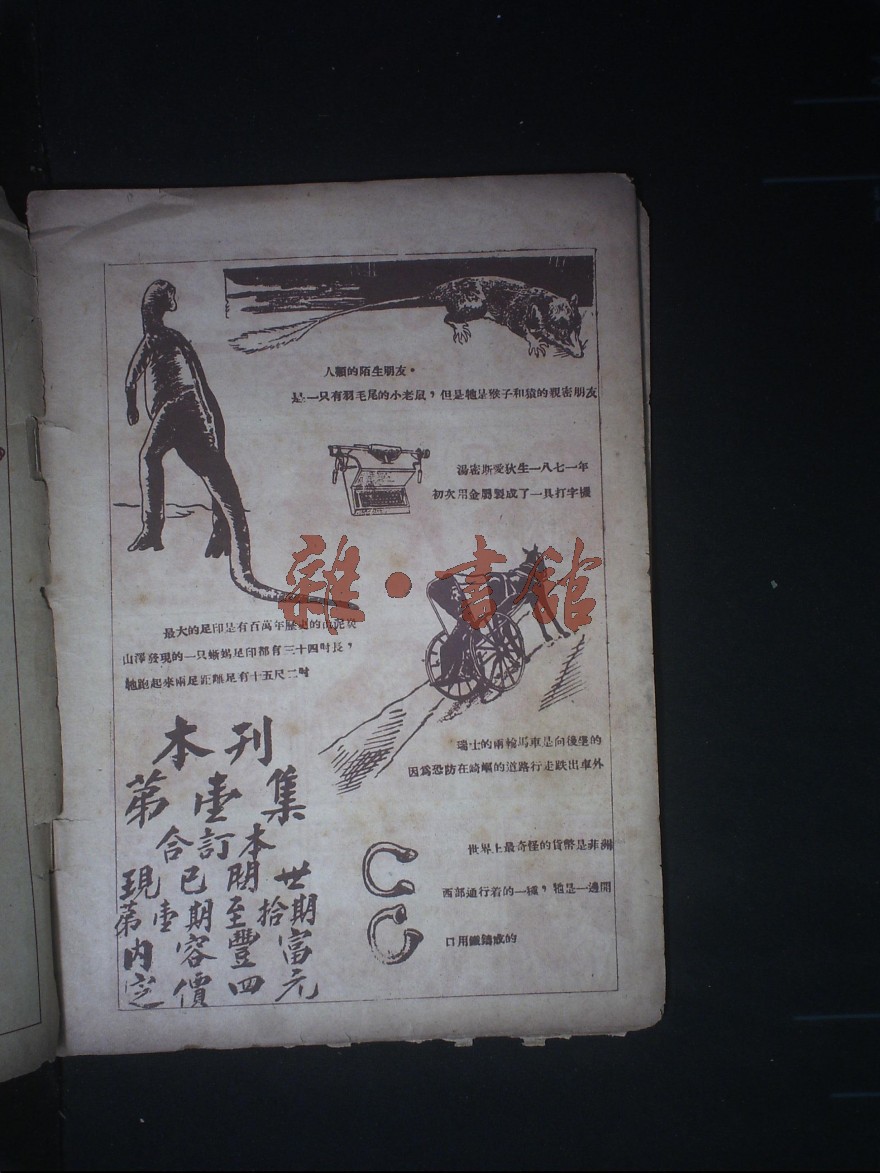 人類的陌生朋友。
是一只有羽毛尾的小老鼠，但是牠是猴子和猿的親密朋友
湯密斯愛狄生一八七一年
初次用金屬製成了一具打字機
雜·書館
最大的足印是有百萬年歷史的
山澤發現的一只蜥蜴足印都有三十四吋長，
牠跑起來兩足距離足有十五尺二吋
瑞士的兩輪馬車是向後坐的
因爲恐防在崎嶇的道路行走跌出車外
本刊
第壹集
合訂本
現已
第壹期至拾期
內容豐富
定價四元
世界上最奇怪的貨幣是非洲
西部通行着的一種，牠是一邊開
口用鐵鑄成的